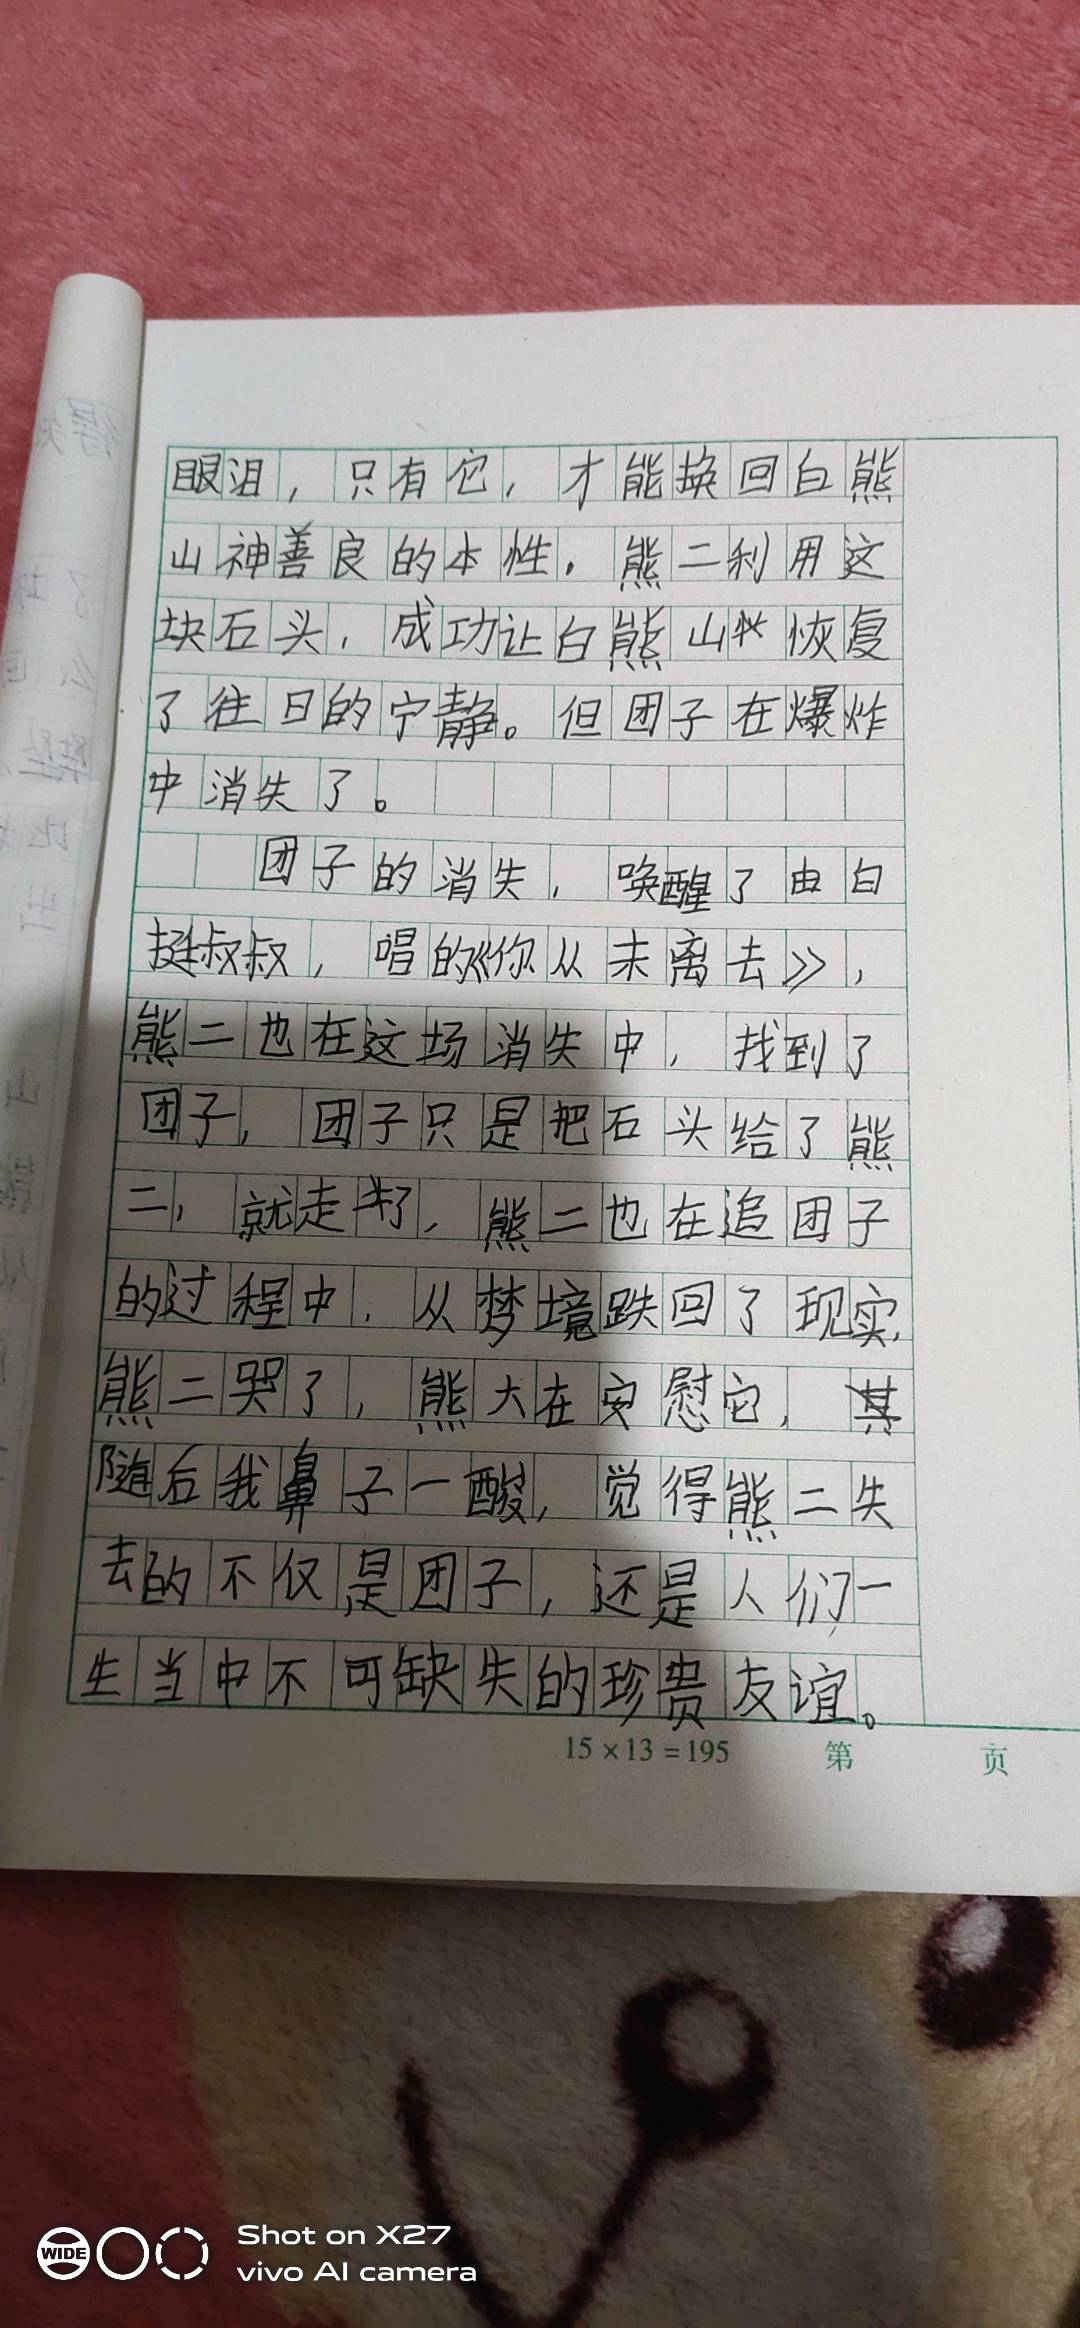 眼泪，只有它，才能换回白熊
山神善良的本性。熊二利用这
块石头，成功让白熊山恢复
了往日的宁静。但团子在爆炸
中消失了。
团子的消失，唤醒了由白
挺叔叔，唱的《你从未离去》，
熊二也在这场消失中，找到了
团子，团子只是把石头给了熊
二，就走了，熊二也在追团子
的过程中，从梦境跌回了现实，
熊二哭了，熊大在安慰它，
随后我鼻子一酸，觉得熊二失
去的不仅是团子，还是人们一
生当中不可缺失的珍贵友谊。
15×13=195 第 页
WIDE
Shot on X27
vivo AI camera